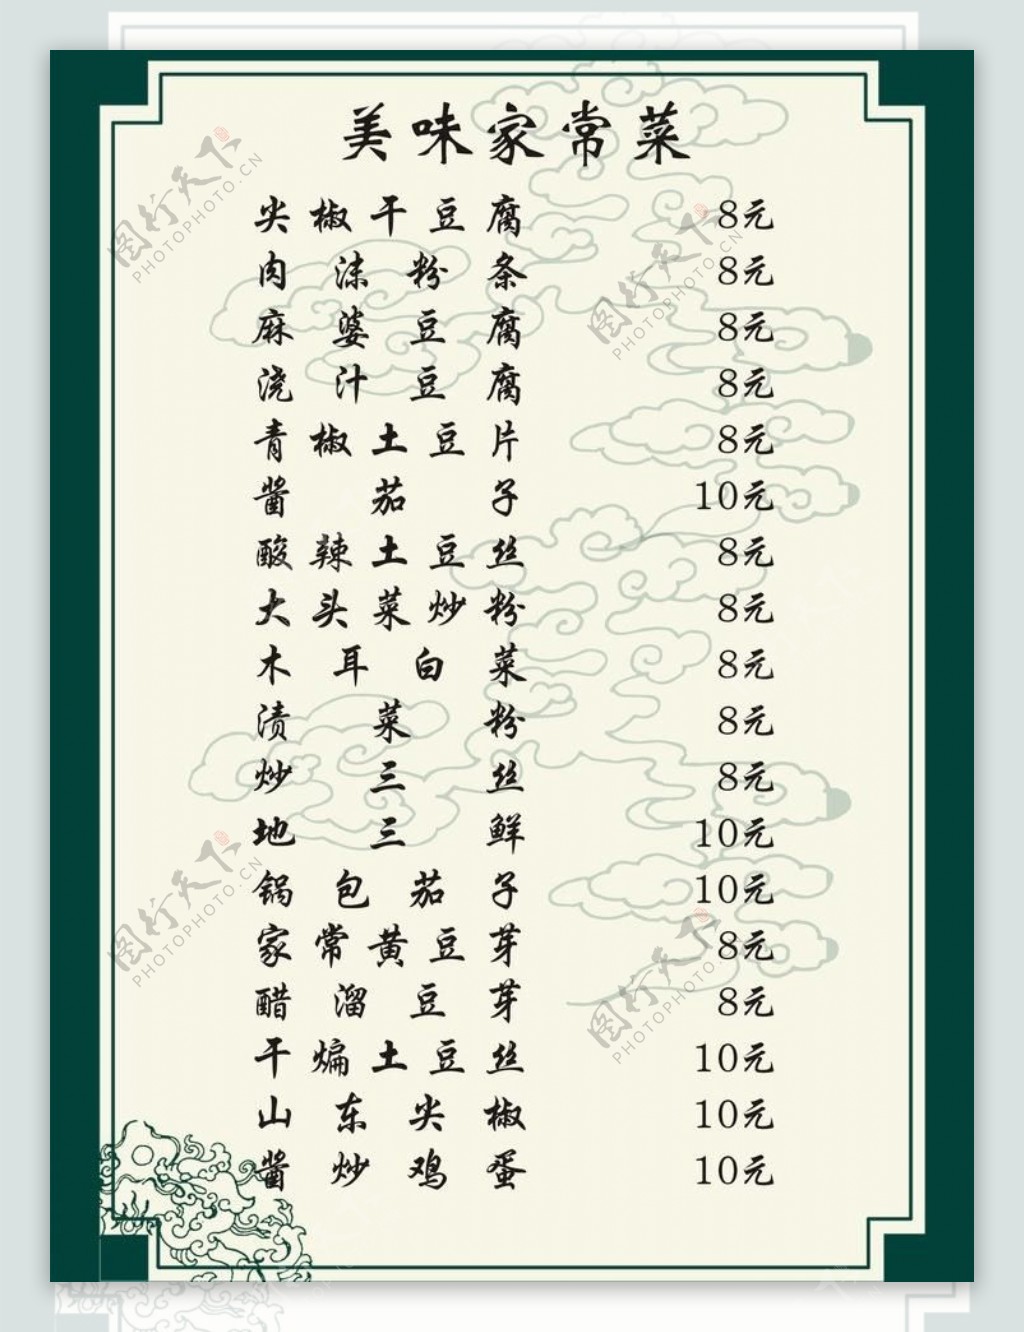 美味家常菜
尖椒干豆腐 8元
肉沫粉条 8元
麻婆豆腐 8元
浇汁豆腐 8元
青椒土豆片 8元
酱茄子 10元
酸辣土豆丝 8元
大头菜炒粉 8元
木耳白菜 8元
渍菜粉 8元
炒三丝 8元
地三鲜 10元
锅包茄子 10元
家常黄豆芽 8元
醋溜豆芽 8元
干煸土豆丝 10元
山东尖椒 10元
酱炒鸡蛋 10元
图行天下
PHOTOPHOTO.CN
图行天下
PHOTOPHOTO.CN
图行天下
PHOTOPHOTO.CN
图行天下
PHOTOPHOTO.CN